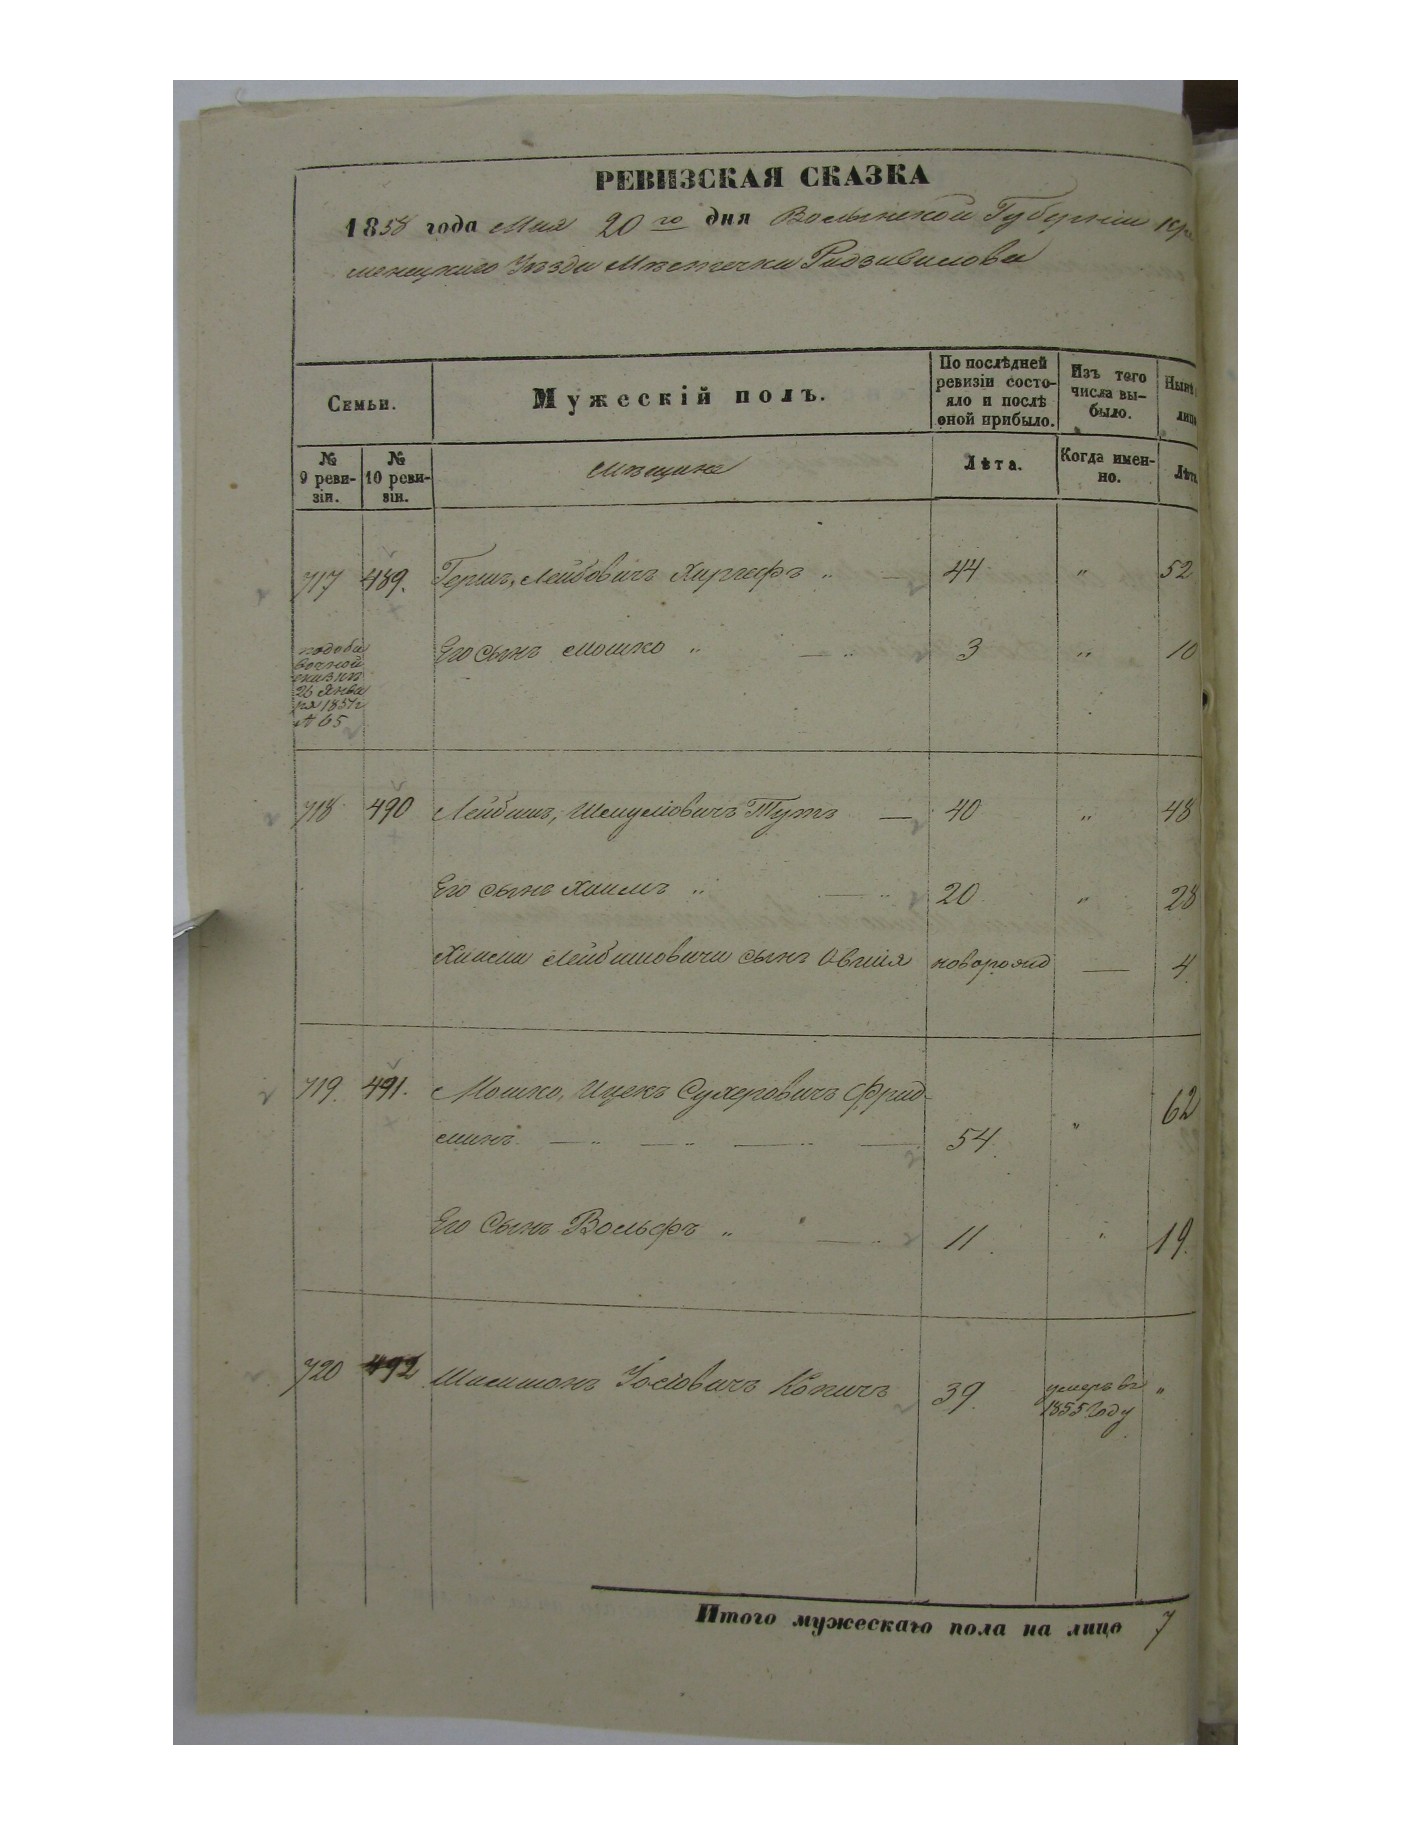 РЕВИЗСКАЯ СКАЗКА
1858 года Мая 20го дня Волынской Губерніи Кре
менецкаго Уѣзда Мѣстечка Радзивилова
Семьи.
Мужескій полъ.
По послѣдней ревизіи состо-
яло и послѣ
оной прибыло.
Изъ того
числа вы-
было.
Нынѣ
лицо
№
9 реви-
зіи.
№
10 реви-
зіи.
мѣщане
Лѣта.
Когда имен-
но.
Лѣта
717 489. Гершъ, Лейбовичъ „ — 44 „ 52
26 Янва
ря 1851г
№ 65
Его сынъ Мошко „ — „ 3 „ 10
718 490 Лейбишъ, Шмуліовичъ Тутъ — 40 „ 48
Его сынъ Хаимъ „ — „ 20 „ 28
Хаима Лейбишовича сынъ Овшія новорожд — 4
719. 491. Мошко, Ицекъ Сухеровичъ Фрид-
манъ — „ — „ — „ — 54 „ 62
Его Сынъ Вольфъ „ — „ 11 „ 19.
720 492 Шимшонъ Іосіовичъ 39. умеръ въ „
1855 Году
Итого мужескаго пола на лицо 7